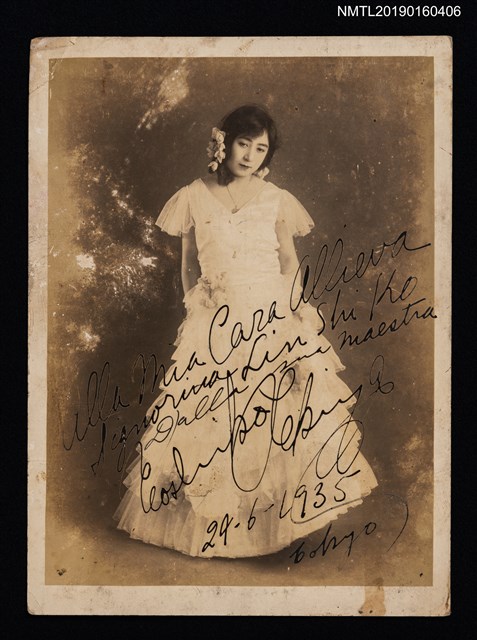 NMTL20190160406
Alla Mia Cara Allieva
Signorina Lin Shi Ko
Dalla sua maestra
24-6-1935
Tokyo